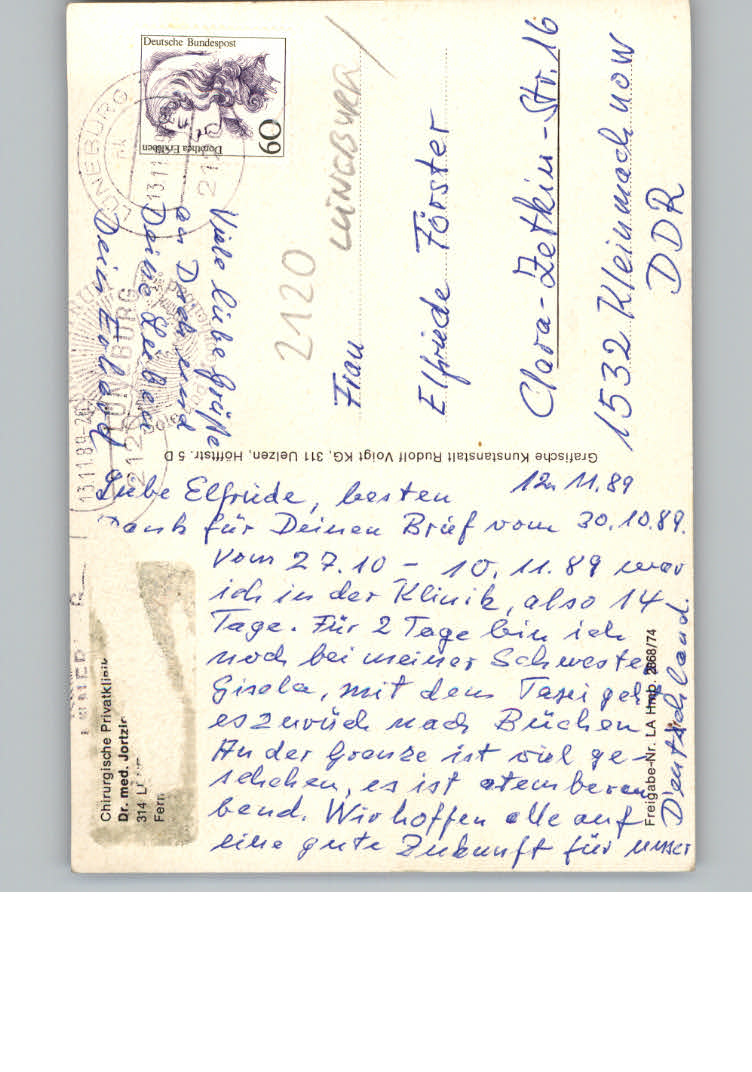 12. 11. 89
Liebe Elfriede, besten
Dank für Deinen Brief vom 30.10.89.
Vom 27.10 - 10.11.89 war
ich in der Klinik, also 14
Tage. Für 2 Tage bin ich
noch bei meiner Schwester
Gisela, mit dem Taxi geht
es zurück nach Büchen.
An der Grenze ist viel ge-
schehen, es ist atemberau-
bend. Wir hoffen alle auf
eine gute Zukunft für unser
Deutschland.
Viele liebe Grüße
an Dich und
Deine Lieben
Dein
Frau
Elfriede Förster
Clara-Zetkin-Str. 16
1532 Kleinmachnow
DDR
2120
LÜNEBURG
Deutsche Bundespost
Dorothea Erxleben
60
LÜNEBURG
13.11
21
13.11.89-20
2120
LÜNEBURG
Grafische Kunstanstalt Rudolf Voigt KG, 311 Uelzen, Höfftstr. 5 D
Chirurgische Privatklinik
Dr. med.
314
Fern
Freigabe-Nr. LA Hmb. 2668/74